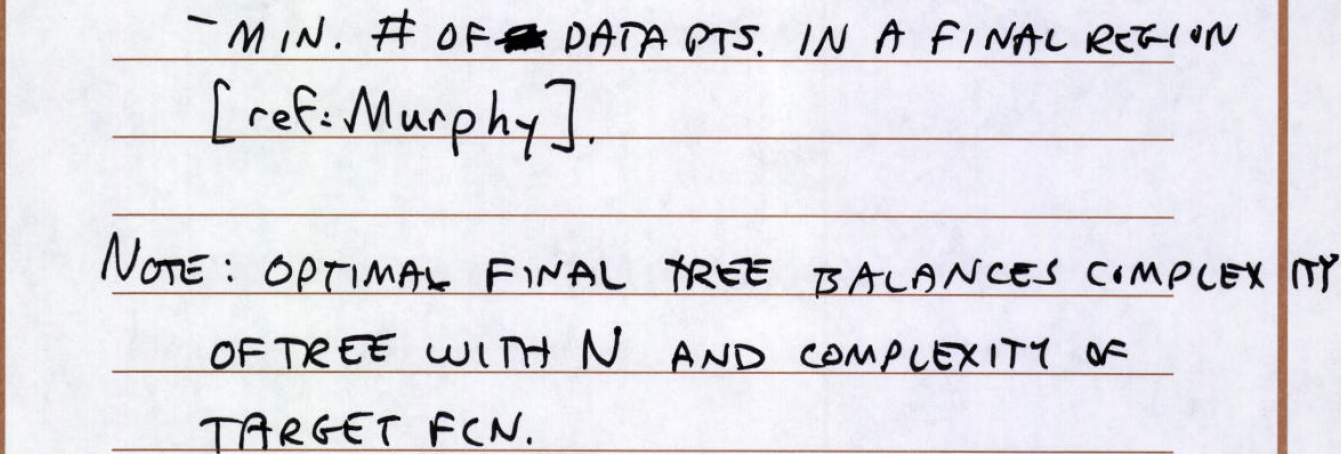 - MIN. # OF DATA PTS. IN A FINAL REGION
[ref: Murphy].
NOTE: OPTIMAL FINAL TREE BALANCES COMPLEXITY
OF TREE WITH N AND COMPLEXITY OF
TARGET FCN.